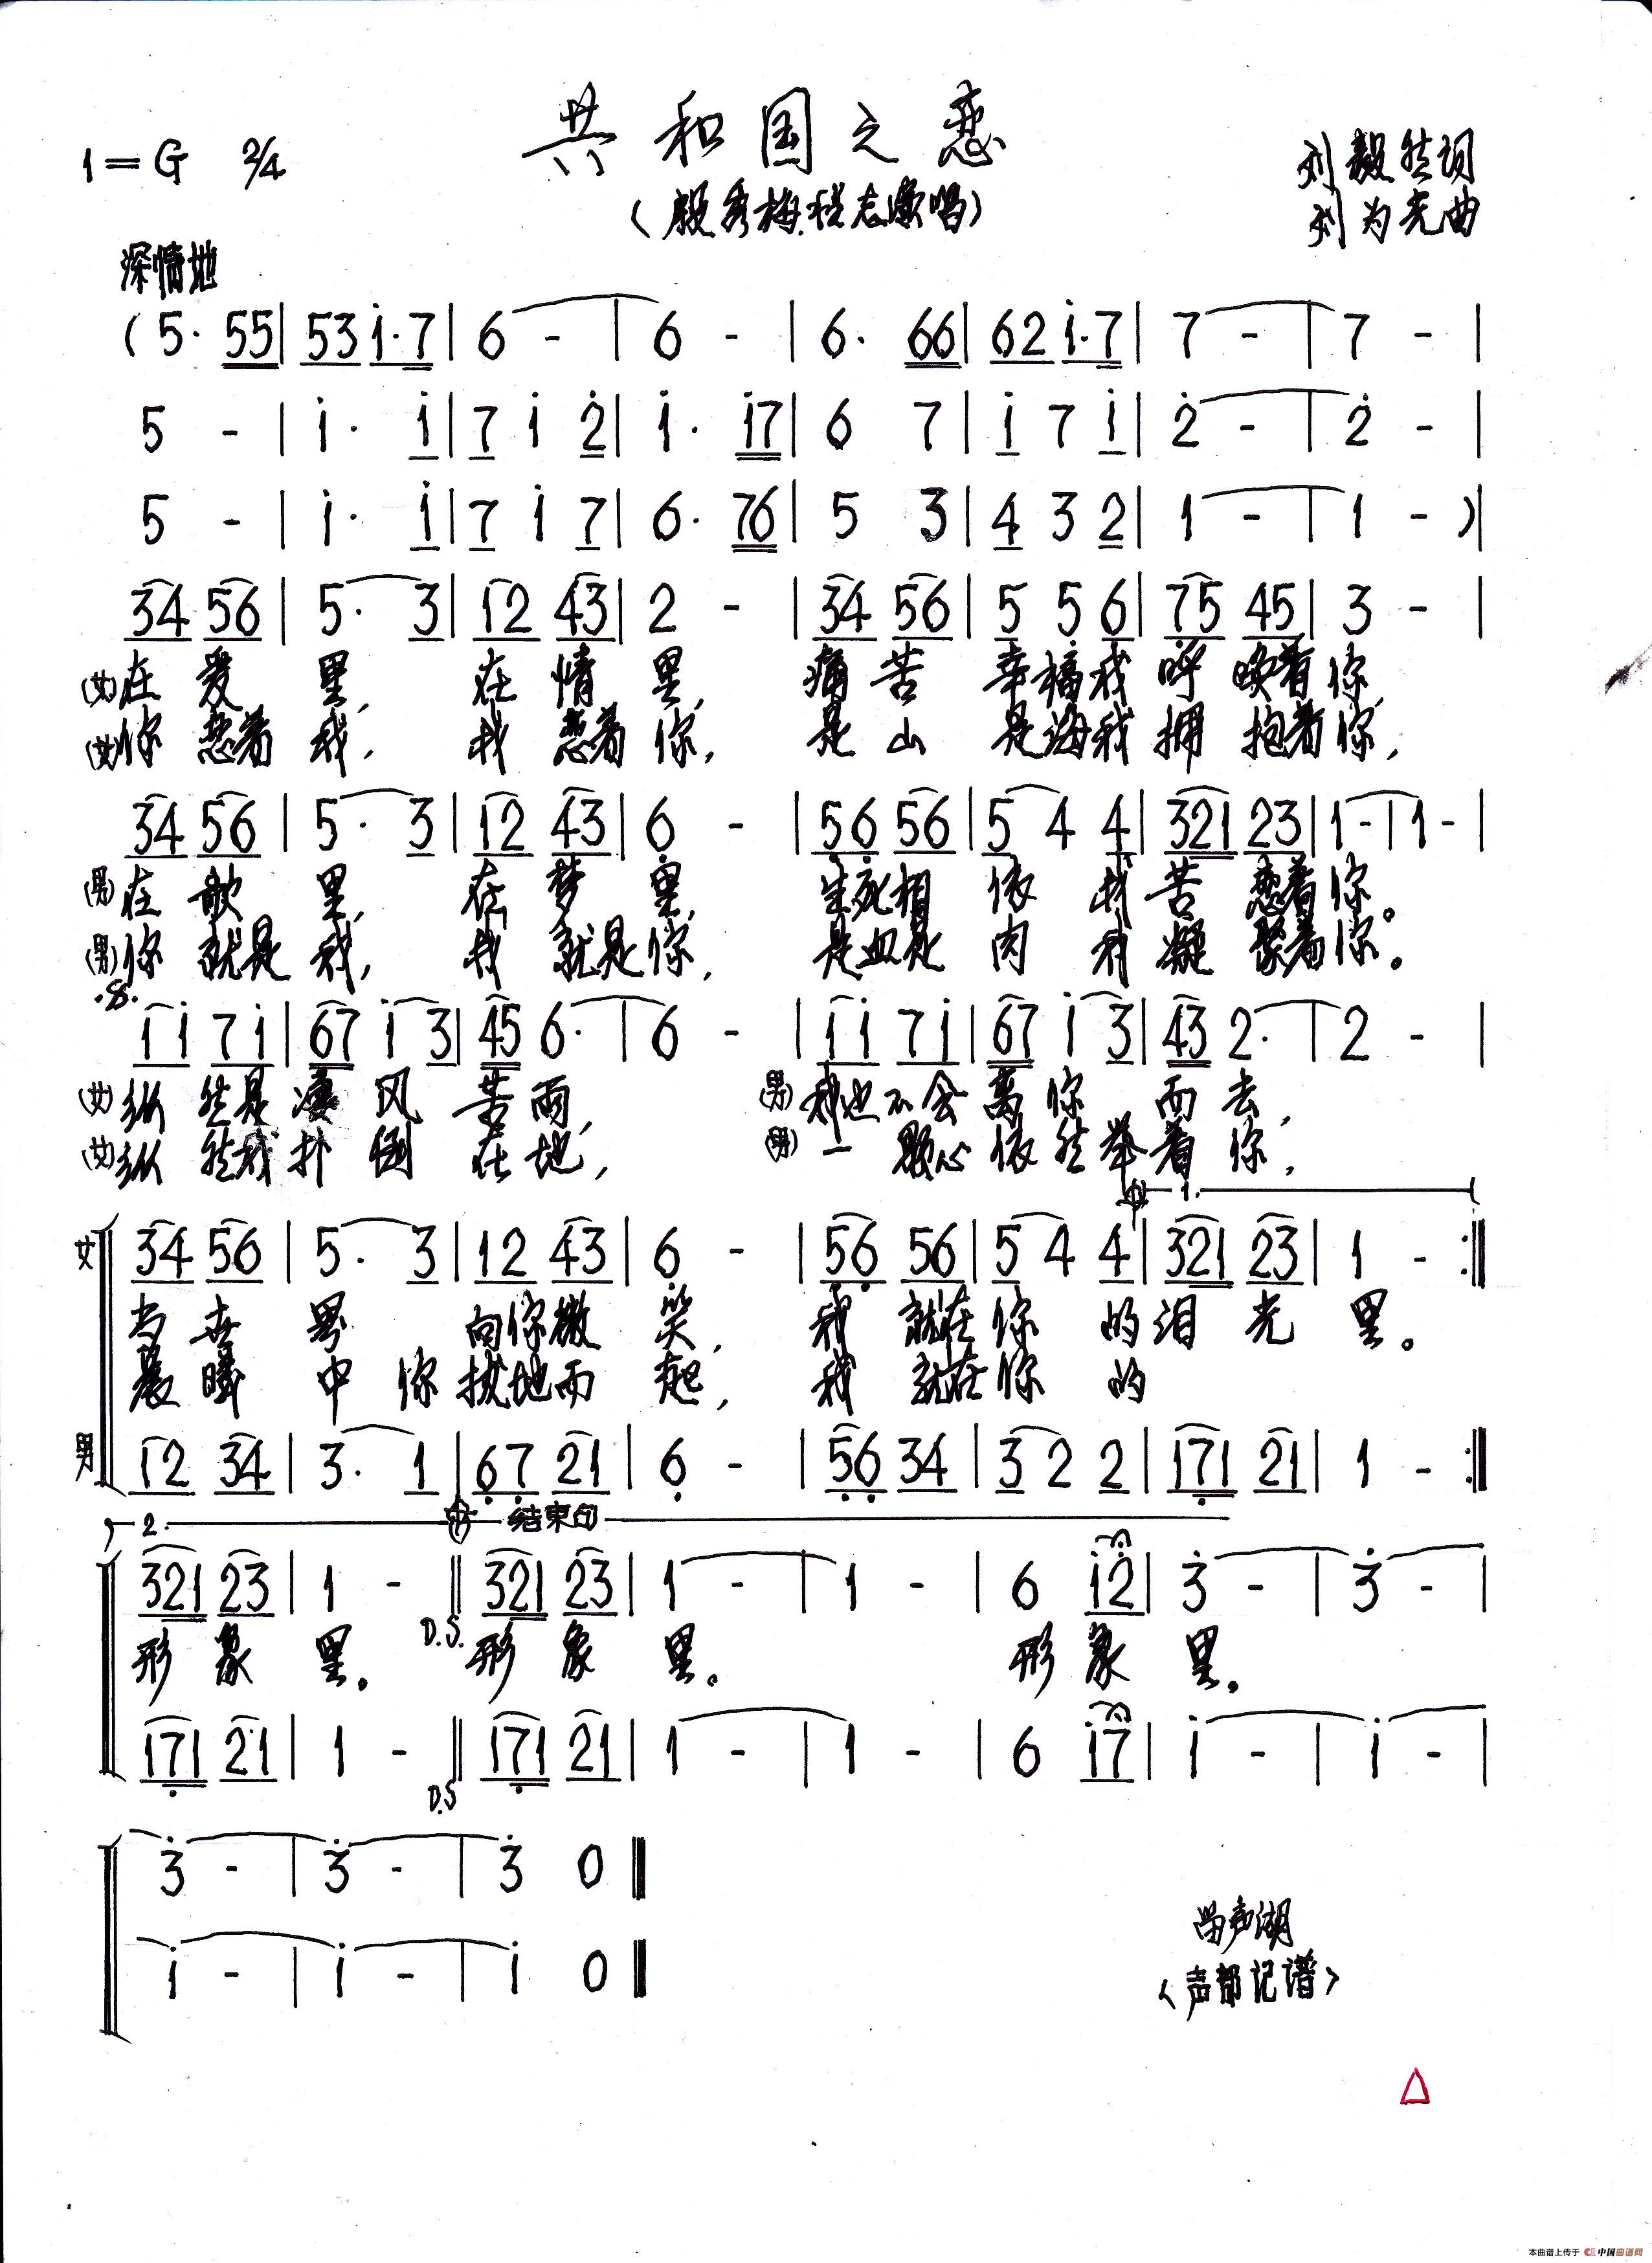 共和国之恋
1=G 2/4
(殷秀梅.程志演唱)
刘毅然词
刘为光曲
深情地
(5· 55|53 1·7|6 -|6 -|6· 66|62 1·7|7 -|7 -|
5 -|1· 1|7 1 2|1· 17|6 7|1 7 1|2 -|2 -|
5 -|1· 1|7 1 7|6· 76|5 3|4 3 2|1 -|1 -)|
34 56|5· 3|12 43|2 -|34 56|5 5 6|75 45|3 -|
(女)在爱里,在情里,痛苦幸福我呼唤着你,
(女)你恋着我,我恋着你,是山是海我拥抱着你,
34 56|5· 3|12 43|6 -|56 56|5 4 4|321 23|1-|1-|
(男)在歌里,在梦里,生死相依我苦恋着你。
(男)你就是我,我就是你,是血是肉我凝聚着你。
11 71|67 1 3|45 6·|6 -|11 71|67 1 3|43 2·|2 -|
(女)纵然是凄风苦雨,(男)我也不会离你而去,
(女)纵然我扑倒在地,(男)一颗心依然举着你,
1.
女 34 56|5· 3|12 43|6 -|56 56|5 4 4|321 23|1 -:‖
当世界向你微笑,我就在你的泪光里。
晨曦中你拔地而起,我就在你的
男 12 34|3· 1|67 21|6 -|56 34|3 2 2|171 21|1 -:‖
2. 结束句
321 23|1 -‖321 23|1 -|1 -|6 12|3 -|3 -|
D.S.
形象里。形象里。形象里。
171 21|1 -‖171 21|1 -|1 -|6 17|1 -|1 -|
D.S
3 -|3 -|3 0‖
1 -|1 -|1 0‖
留声湖
<声部记谱>
本曲谱上传于 中国曲谱网